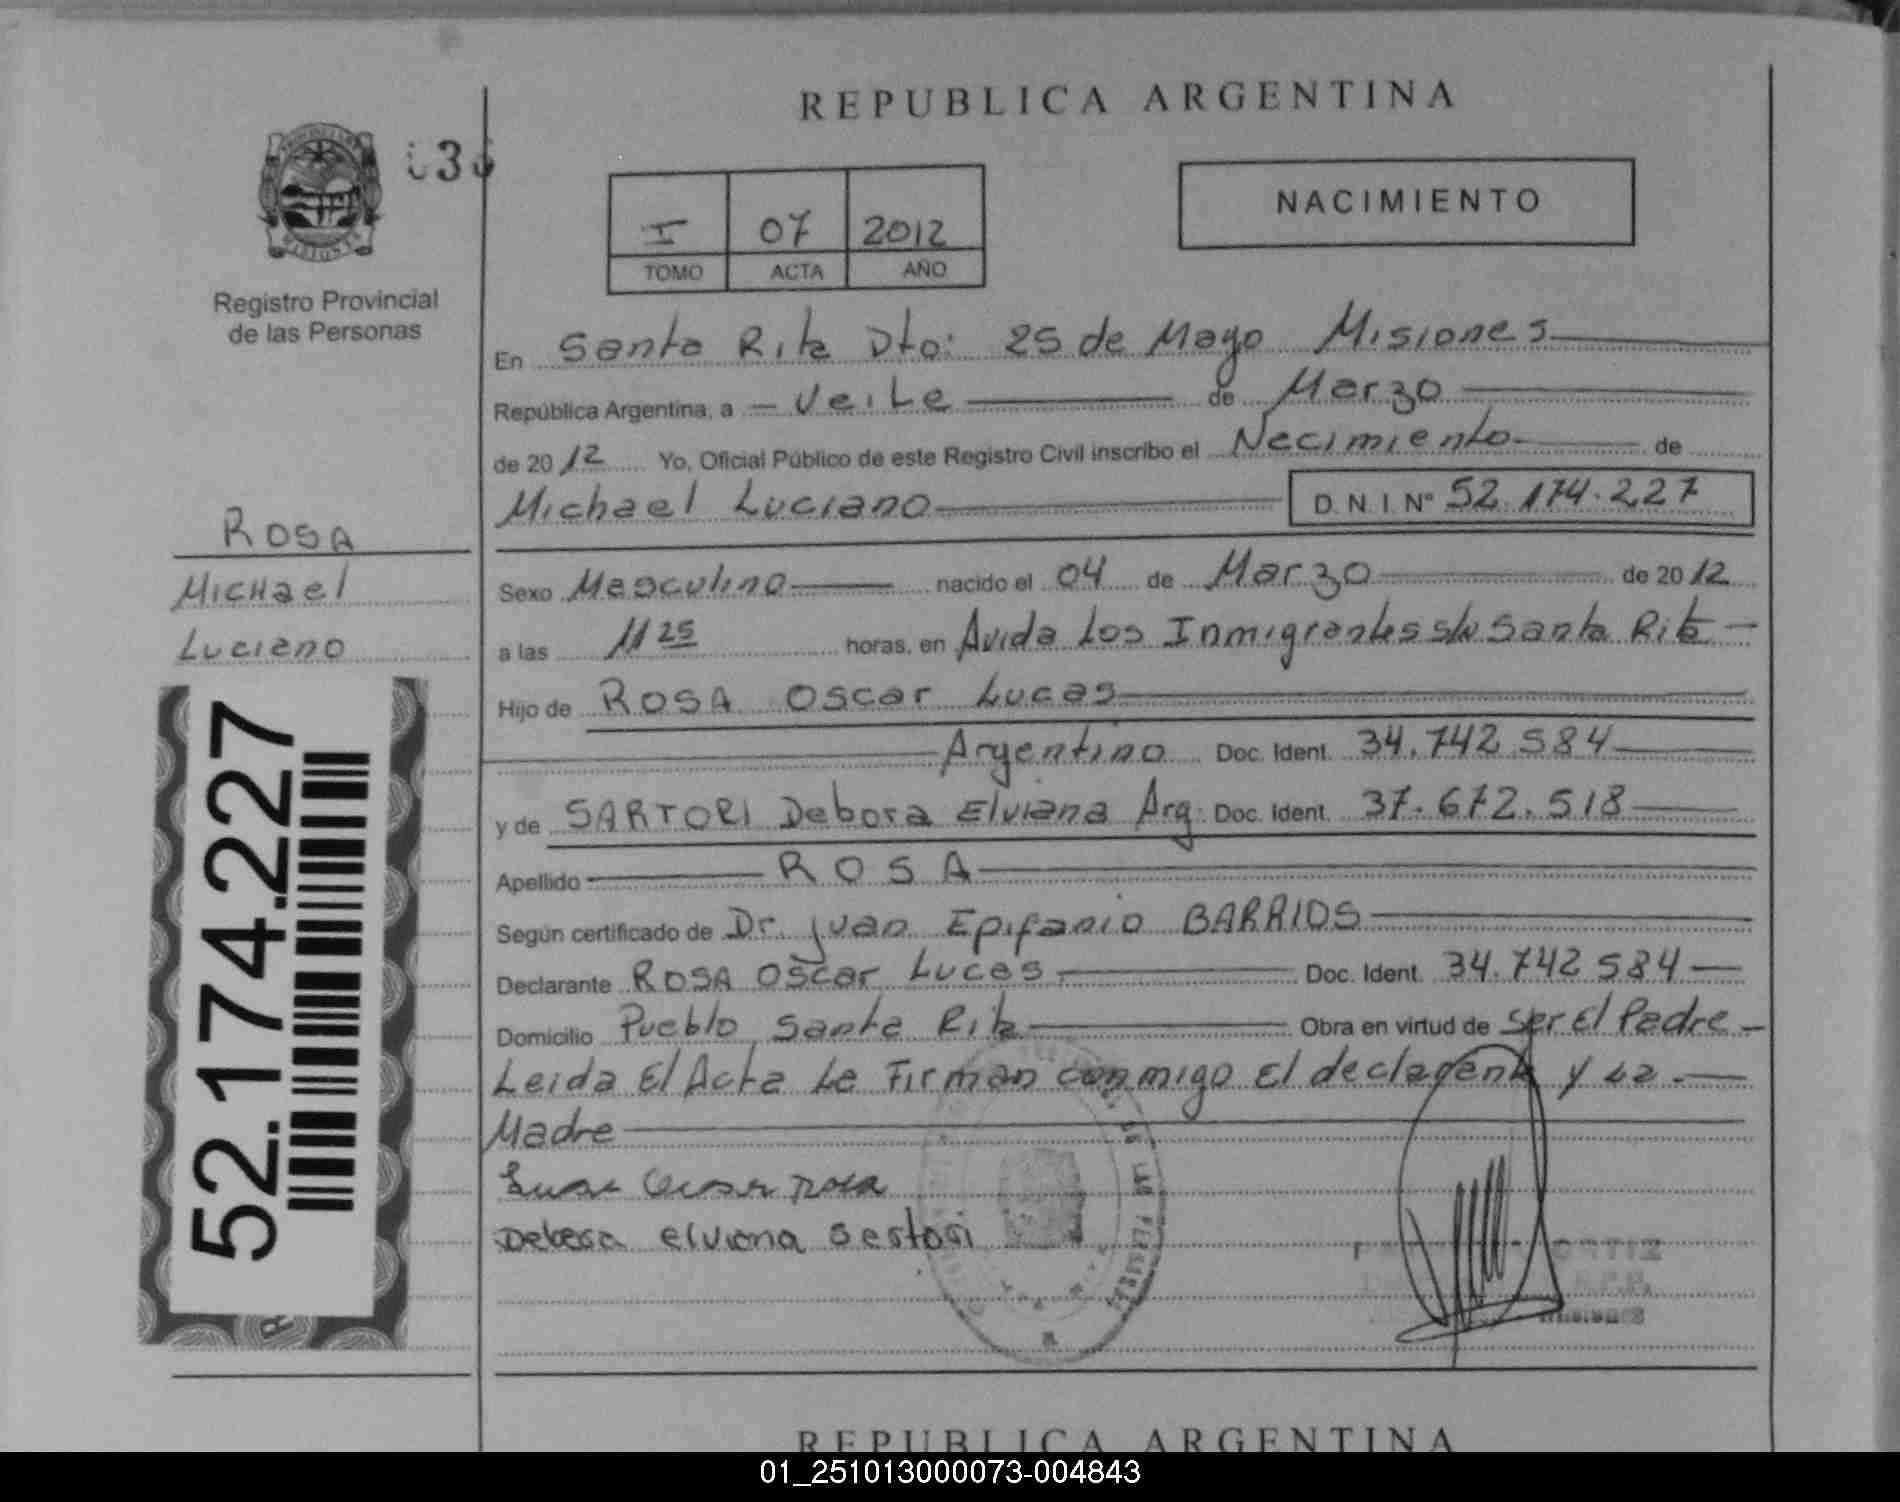 REPUBLICA ARGENTINA
I 07 2012
TOMO ACTA AÑO
NACIMIENTO
Registro Provincial
de las Personas
ROSA
Michael
Luciano
52.174.227
En Santa Rita Dto: 25 de Mayo Misiones
República Argentina, a Veite de Marzo
de 2012 Yo, Oficial Público de este Registro Civil inscribo el Nacimiento de
Michael Luciano D.N.I. Nº 52.174.227
Sexo Masculino nacido el 04 de Marzo de 2012
a las 11 25 horas, en Avida Los Inmigrantes s/n Santa Rita
Hijo de ROSA Oscar Lucas
Argentino Doc. Ident. 34.742.584
y de SARTORI Debora Elviana Arg. Doc. Ident. 37.672.518
Apellido ROSA
Según certificado de Dr. Juan Epifanio BARRIOS
Declarante ROSA Oscar Lucas Doc. Ident. 34.742.584
Domicilio Pueblo Santa Rita Obra en virtud de Ser El Padre
Leida El Acta La Firman conmigo El declarente y La
Madre
Debora elviana Sartori
ORTIZ
REPUBLICA ARGENTINA
01_251013000073-004843